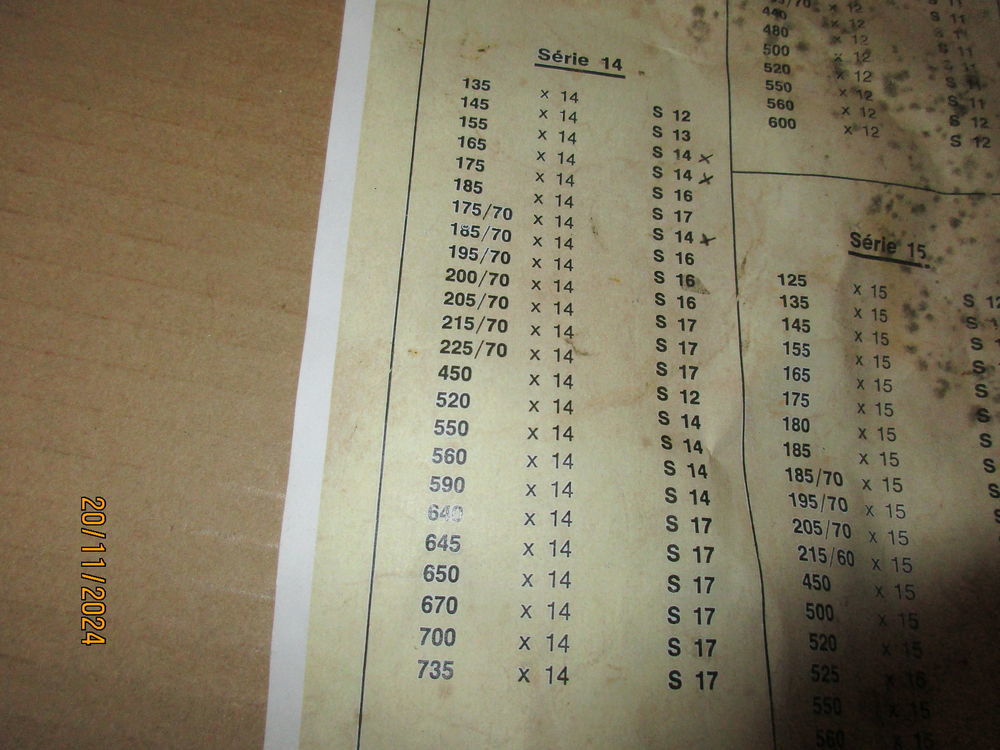 Série 14
135 x 14 S 12
145 x 14 S 13
155 x 14 S 14 x
165 x 14 S 14 x
175 x 14 S 16
185 x 14 S 17
175/70 x 14 S 14 x
185/70 x 14 S 16
195/70 x 14 S 16
200/70 x 14 S 16
205/70 x 14 S 17
215/70 x 14 S 17
225/70 x 14 S 17
450 x 14 S 12
520 x 14 S 14
550 x 14 S 14
560 x 14 S 14
590 x 14 S 14
640 x 14 S 17
645 x 14 S 17
650 x 14 S 17
670 x 14 S 17
700 x 14 S 17
735 x 14 S 17
x 12 S 11
440 x 12 S 11
480 x 12 S 11
500 x 12 S 11
520 x 12 S 11
550 x 12 S 11
560 x 12 S 12
600 x 12 S 12
Série 15
125 x 15 S 12
135 x 15 S
145 x 15 S
155 x 15 S
165 x 15 S
175 x 15 S
180 x 15 S
185 x 15 S
185/70 x 15 S
195/70 x 15
205/70 x 15
215/60 x 15
450 x 15
500 x 15
520 x 15
525 x
550 x 15
560 x 15
20/11/2024